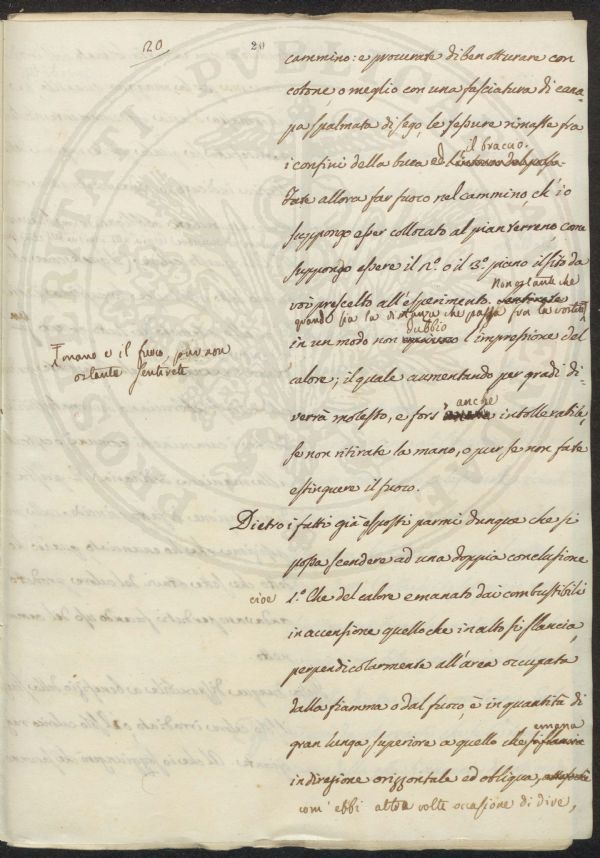 20
20
cammino: e procurate di ben otturare con
cotone, o meglio con una fasciatura di cana=
pa spalmata di sego le fessure rimaste fra
il bracio.
i confini della buca ed l'intorno del posso.
Fate allora far fuoco nel cammino, ch'io
suppongo esser collocato al pian terreno, come
suppongo essere il 2.º o il 3.º piano il sito da
Non ostante che
voi prescelto all'esperimento. sentirete
grande sia la distanza che passa fra la vostra
dubbio
in un modo non l'impressione del
F mano e il fuoco, pur non
ostante sentirete
calore; il quale aumentando per gradi di=
anche
verrà molesto, e fors' intollerabile,
se non ritirate la mano, o pur se non fate
estinguere il fuoco.
Dietro i fatti già esposti parmi dunque che si
possa scendere ad una doppia conclusione
cioè
1.º Che del calore emanato dai combustibili
in accensione quello che in alto si slancia
perpendicolarmente all'area occupata
dalla fiamma o dal fuoco, è in quantità di
emana
gran lunga superiore a quello che si slancia
in direzione orizzontale ed obliqua,
com' ebbi altra volte occasione di dire,
PROSPERITATI PUBLICAE